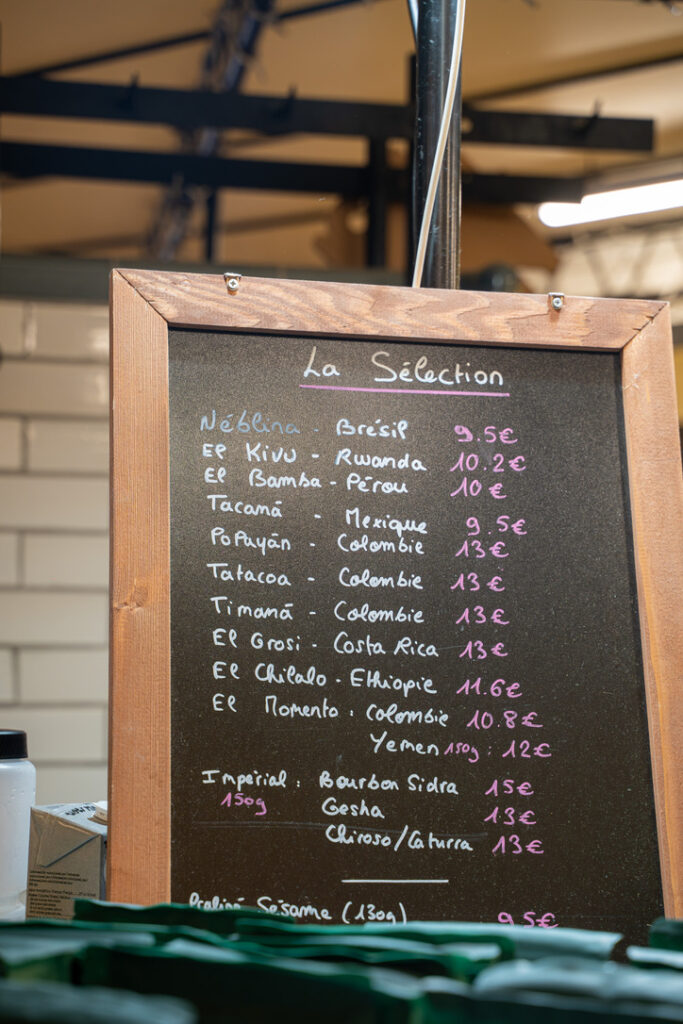 La Sélection
Néblina - Brésil 9.5€
El Kivu - Rwanda 10.2€
El Bamba - Pérou 10€
Tacanã - Mexique 9.5€
Popayãn - Colombie 13€
Tatacoa - Colombie 13€
Timanã - Colombie 13€
El Grosi - Costa Rica 13€
El Chilalo - Ethiopie 11.6€
El Momento : Colombie 10.8€
Yemen 150g : 12€
Impérial : Bourbon Sidra 15€
150g Gesha 13€
Chiroso/Caturra 13€
Praliné Sésame (130g) 9.5€